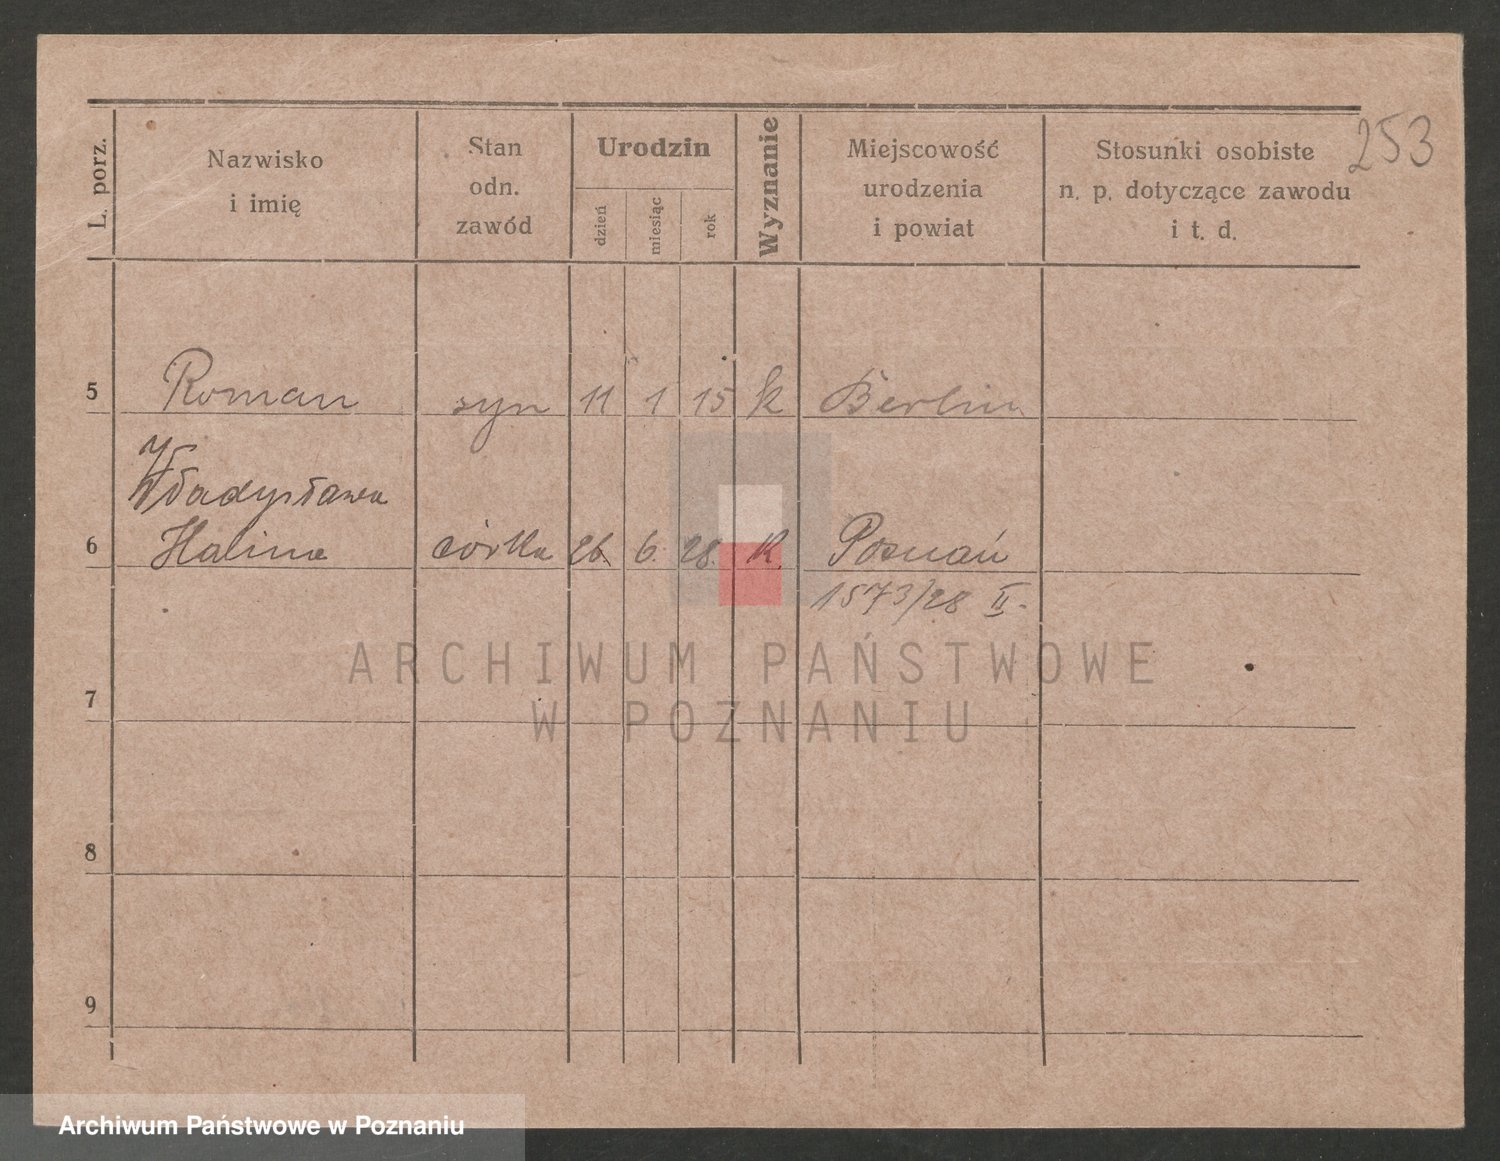 253
L. porz.
Nazwisko
i imię
Stan
odn.
zawód
Urodzin
dzień
miesiąc
rok
Wyznanie
Miejscowość
urodzenia
i powiat
Stosunki osobiste
n. p. dotyczące zawodu
i t. d.
5 Roman syn 11 1 15 k Berlin
Władysława
6 Halina córka 26. 6. 28. K. Poznań
1573/28 II.
7
8
9
ARCHIWUM PAŃSTWOWE
W POZNANIU
Archiwum Państwowe w Poznaniu